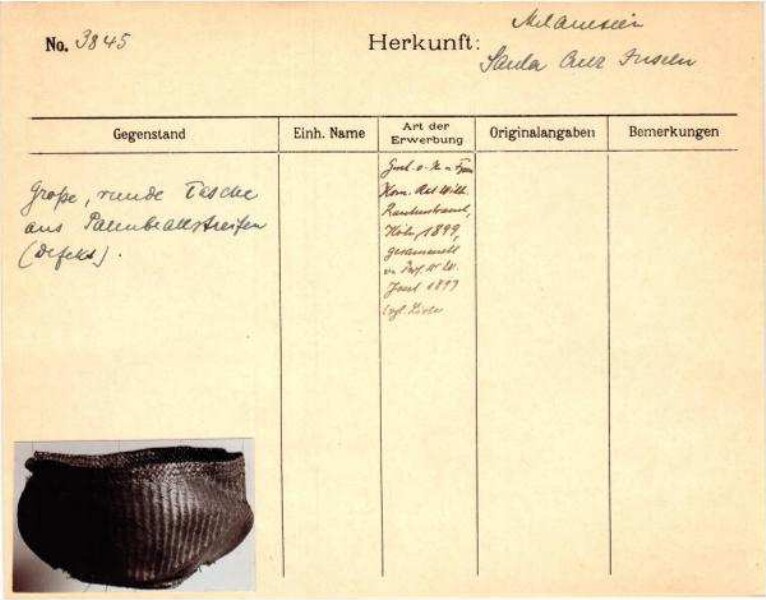 No. 3845
Herkunft: Melanesien
Santa Cruz Inseln
Gegenstand
Einh. Name
Art der Erwerbung
Originalangaben
Bemerkungen
Große, runde Tasche
aus Palmblattstreifen
(defekt).
Kom. Rat Wilh.
Rautenstrauch,
Köln, 1899,
gesammelt
v. Prof.
Joest 1897
vgl. Liste